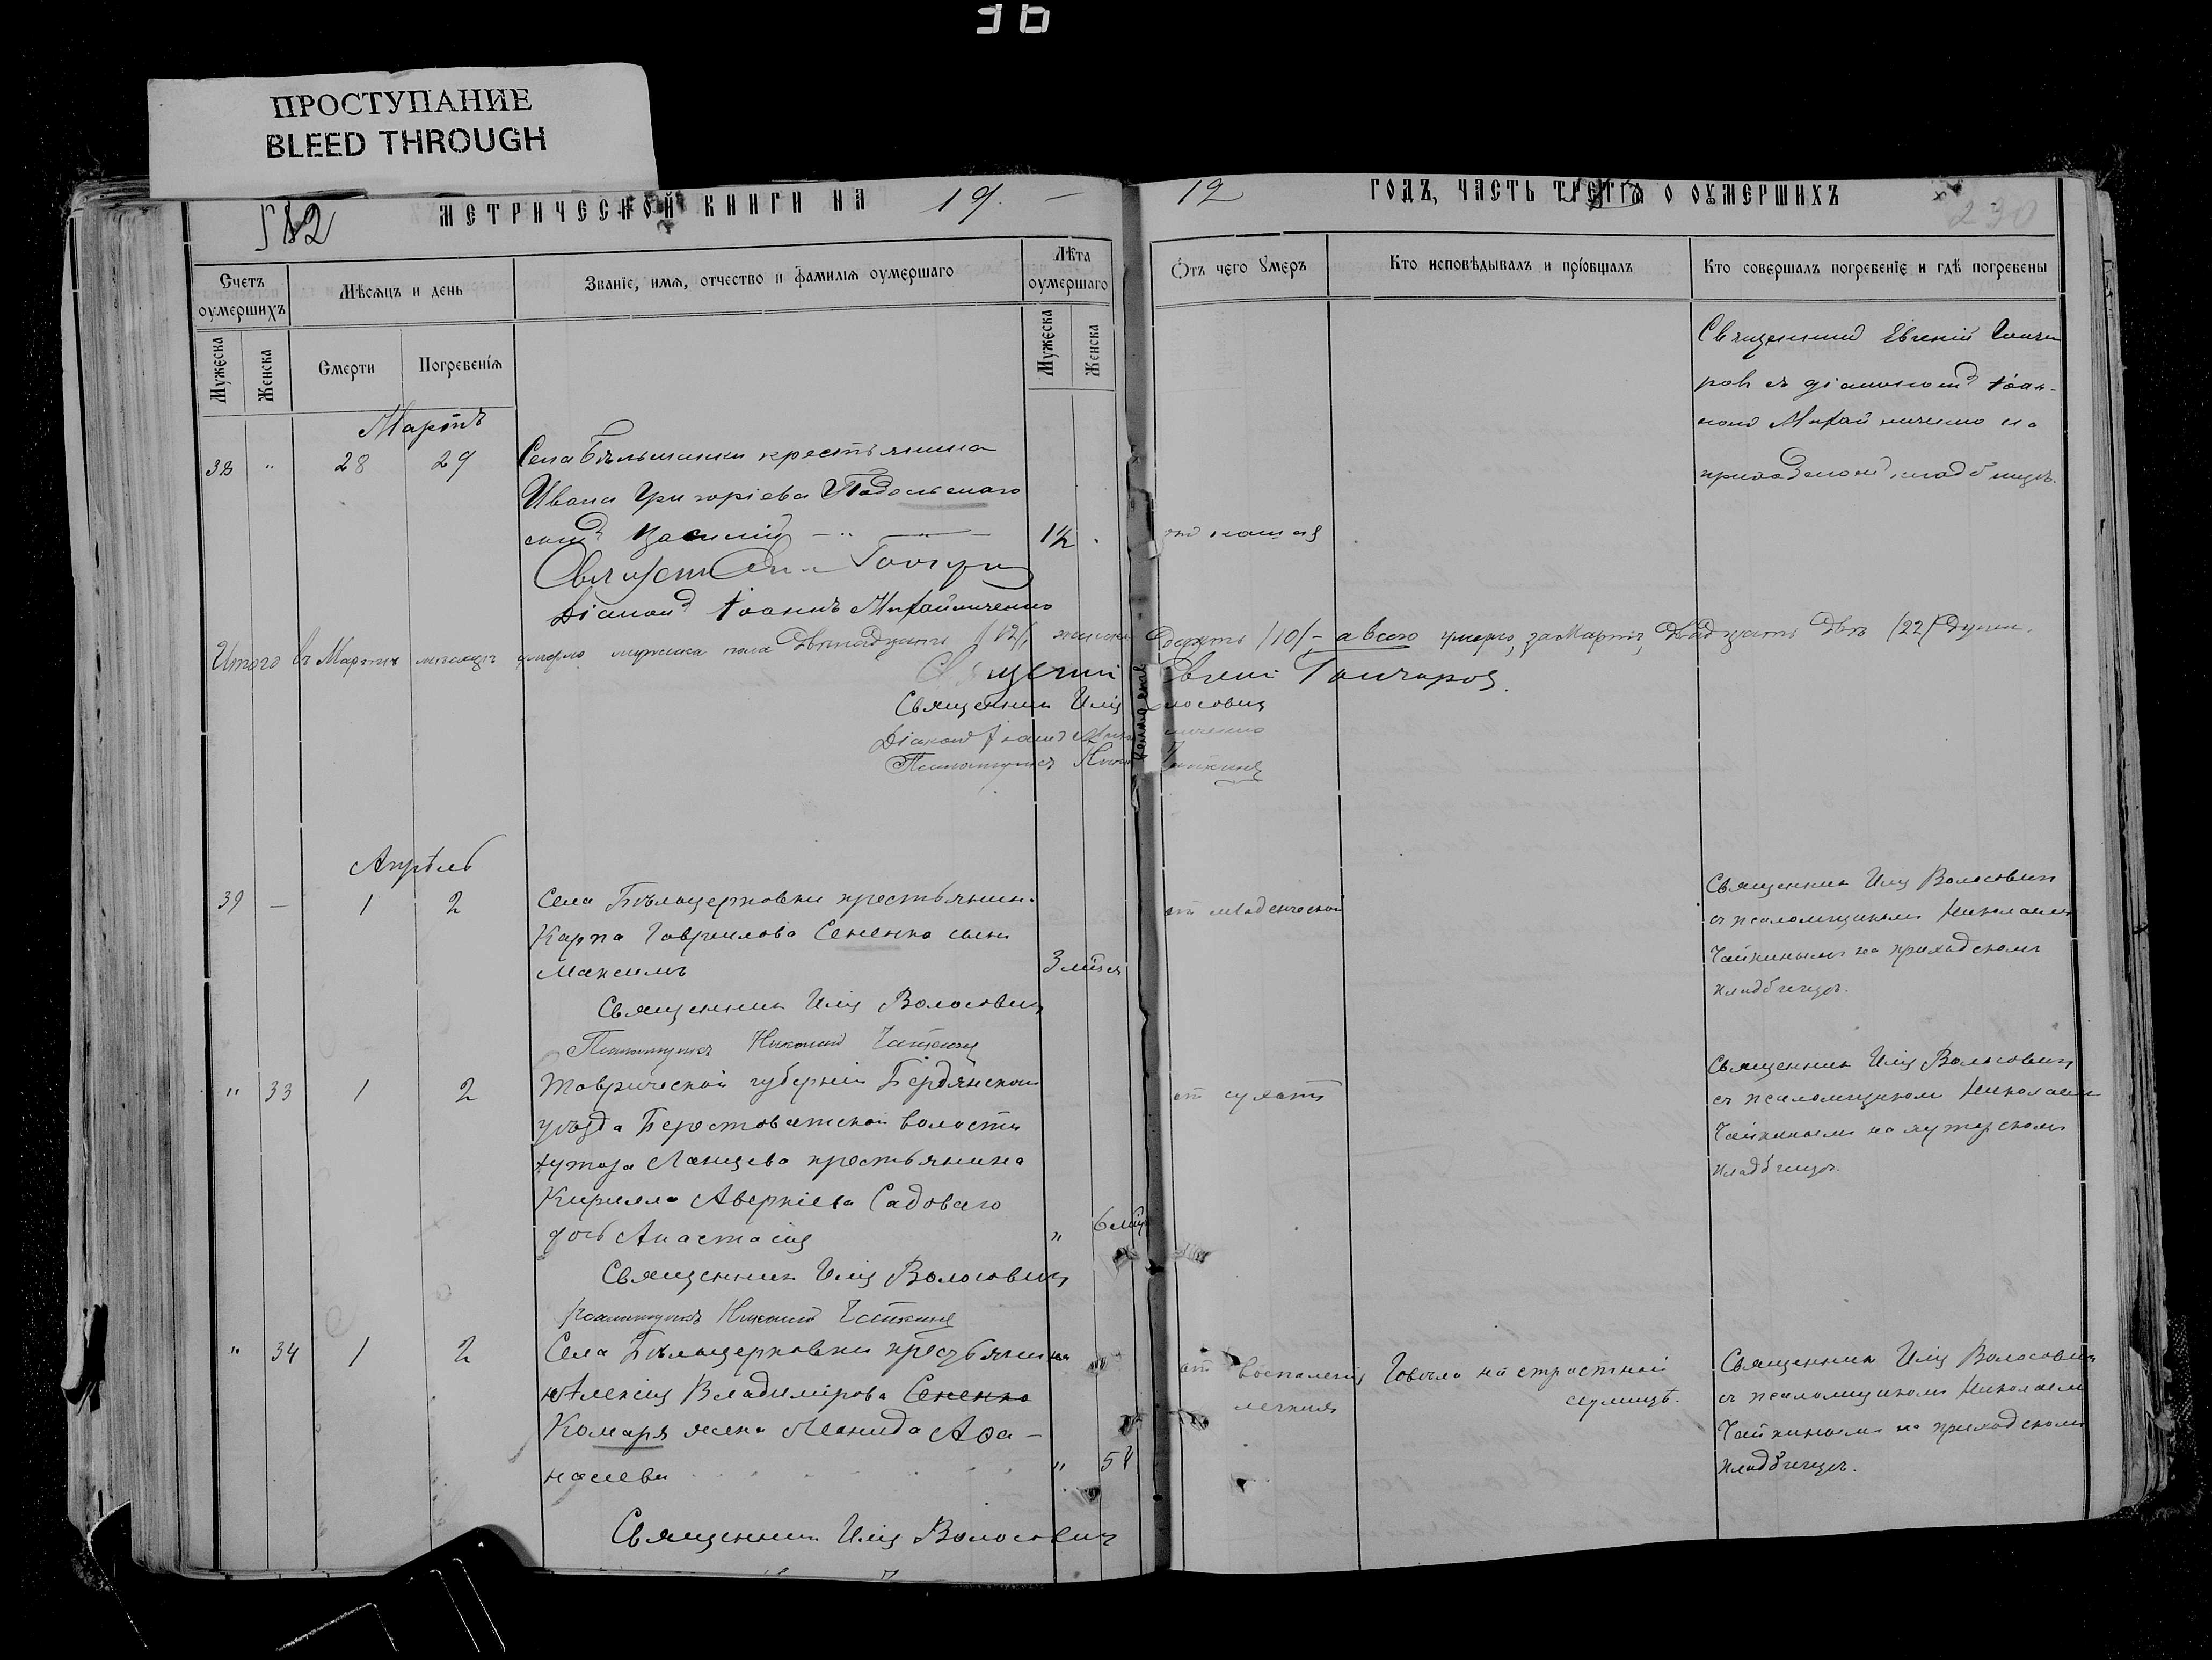 30
ПРОСТУПАНИЕ
BLEED THROUGH
МЕТРИЧЕСКОЙ КНИГИ НА 19 — 12 ГОДЪ, ЧАСТЬ ТРЕТІЯ О ОУМЕРШИХЪ
230
Счетъ оумершихъ
Мѣсяцъ и день
Званіе, имя, отчество и фамилія оумершаго
Лѣта оумершаго
Отъ чего умеръ
Кто исповѣдывалъ и пріобщалъ
Кто совершалъ погребеніе и гдѣ погребены
Мужеска
Женска
Смерти
Погребенія
Мужеска
Женска
Мартъ
Священникъ Евгеній Гонча
ровъ съ діакономъ Іоан-
номъ Михайличенко на
приходскомъ кладбищѣ.
38 " 28 29
Села крестьянина
Ивана Григоріева Подольскаго
сынъ Василій 1½
отъ кашля
Діаконъ Іоаннъ Михайличенко
Итого въ Мартѣ мѣсяцѣ умерло мужска пола двѣнадцать /12/, женска десять /10/ - а всего умерло, за Мартъ, двадцать двѣ /22/ души.
Священникъ Евгеній Гончаровъ.
Священникъ Илія Волосовичъ
Діаконъ Іоаннъ Михайличенко
Псаломщикъ Николай Чайкинъ
Апрѣль
39 — 1 2
Села Бѣлоцерковки крестьянина
Карпа Гаврилова Сененко сынъ
Максимъ
3 мѣсяц
от младенческой
Священник Илія Волосовичъ
съ псаломщикомъ Николаемъ
Чайкинымъ на приходскомъ
кладбищѣ.
Священник Илія Волосовичъ
Псаломщикъ Николай Чайкинъ
" 33 1 2
Таврической губерніи Бердянскаго
уѣзда Берестоватской волости
хутора крестьянина
Кирилла Аверкіева Садоваго
дочь Анастасія
" 6 мѣс
от сухоты
Священник Илія Волосовичъ
съ псаломщиком Николаемъ
Чайкинымъ на хуторскомъ
кладбищѣ.
Священник Илія Волосовичъ
Псаломщикъ Николай Чайкинъ
" 34 1 2
Села Бѣлоцерковки крестьянина
Алексія Владимірова Сененко
Комаря жена Леонида Афа-
насіева
" 54
от воспаленія
легкихъ
Говѣла на страстной
седмицѣ.
Священник Илія Волосовичъ
съ псаломщикомъ Николаемъ
Чайкинымъ на приходскомъ
кладбищѣ.
Священник Илія Волосовичъ